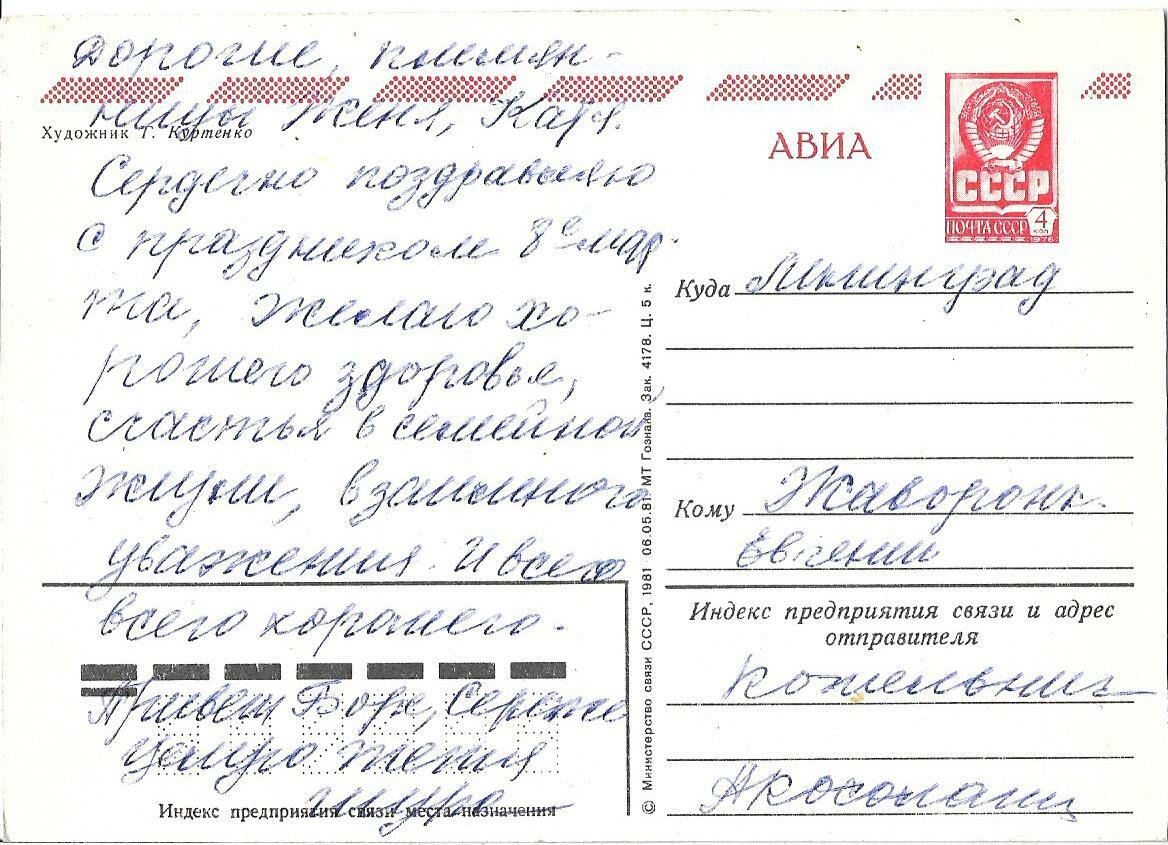 Дорогие, племян-
ницы Женя, Катя.
Художник Г. Куртенко
Сердечно поздравляю
с праздником 8е мар-
та, желаю хо-
рошего здоровья,
счастья в семейной
жизни, взаимного
уважения. И всего
всего хорошего.
Привет Боре, Сереже
целую тетя
АВИА
СССР
ПОЧТА СССР 4 коп
1976
Куда Ленинград
Кому Жаворонк.
Евгении
Индекс предприятия связи и адрес
отправителя
Кожельниц
Индекс предприятия связи места назначения
© Министерство связи СССР, 1981 06.05.81 МТ Гознака. Зак. 4178. Ц. 5 к.